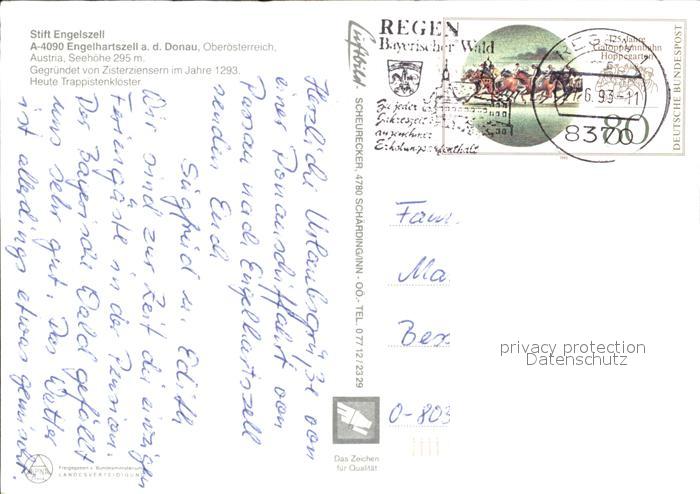 Stift Engelszell
A-4090 Engelhartszell a. d. Donau, Oberösterreich,
Austria, Seehöhe 295 m.
Gegründet von Zisterziensern im Jahre 1293.
Heute Trappistenkloster
Herzliche Urlaubsgrüße von
einer Donauschiffahrt von
Passau nach Engelhartszell
senden Euch
Siegfried u. Edith
Wir sind zur Zeit die einzigen
Feriengäste in der Pension.
Der Bayerische Wald gefällt
uns sehr gut. Das Wetter
ist allerdings etwas gemischt.
Freigegeben v. Bundesministerium
LANDESVERTEIDIGUNG
Luftbild · SCHEURECKER, 4780 SCHÄRDING/INN - OÖ. - TEL. 0 77 12 / 23 29
REGEN
Bayerischer Wald
Zu jeder
Jahreszeit
angenehmer
Erholungsaufenthalt
REGEN
6.93-11
8370
125 Jahre
Galopprennbahn
Hoppegarten
80
DEUTSCHE BUNDESPOST
Fam.
Ma
Bex
O-803
privacy protection
Datenschutz
Das Zeichen
für Qualität